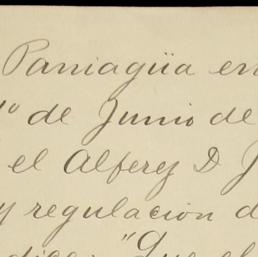 Paniagüa en
1º de Junio de
el Alferez D J
y regulacion d
dice: "Que el